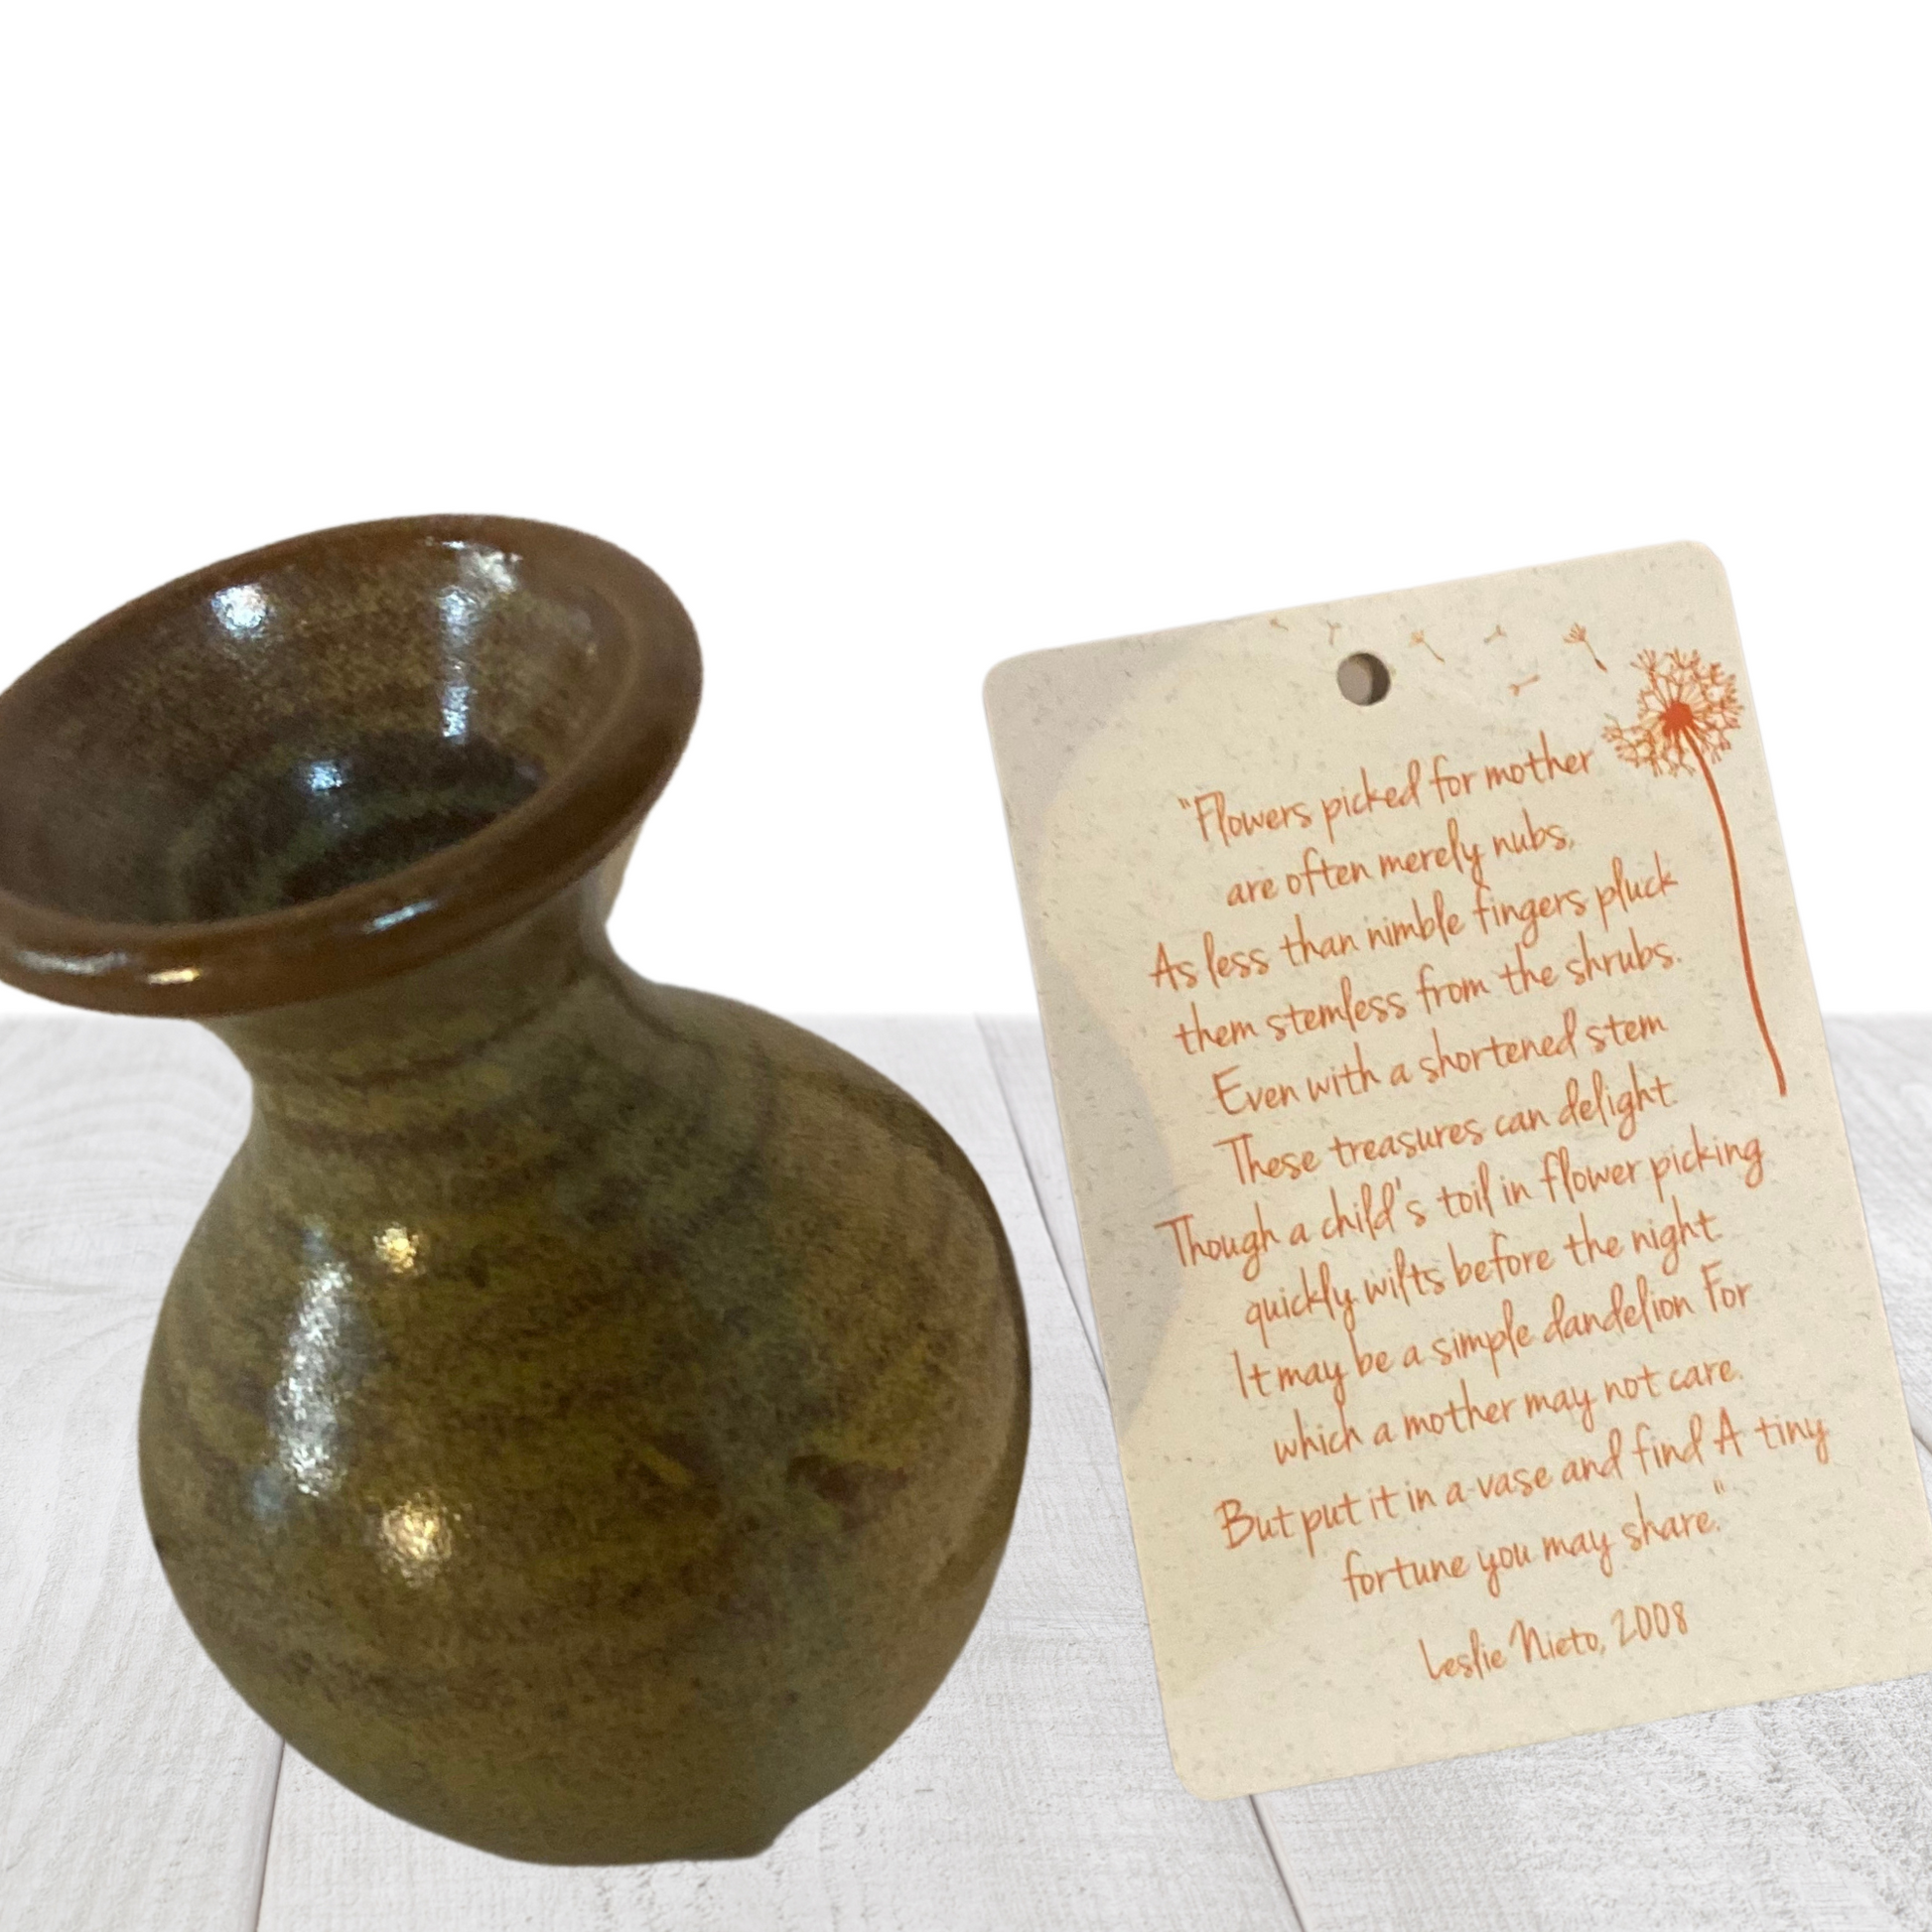 "Flowers picked for mother
are often merely nubs,
As less than nimble fingers pluck
them stemless from the shrubs.
Even with a shortened stem
These treasures can delight
Though a child's toil in flower picking
quickly wilts before the night
It may be a simple dandelion For
which a mother may not care.
But put it in a vase and find A tiny
fortune you may share."
Leslie Nieto, 2008